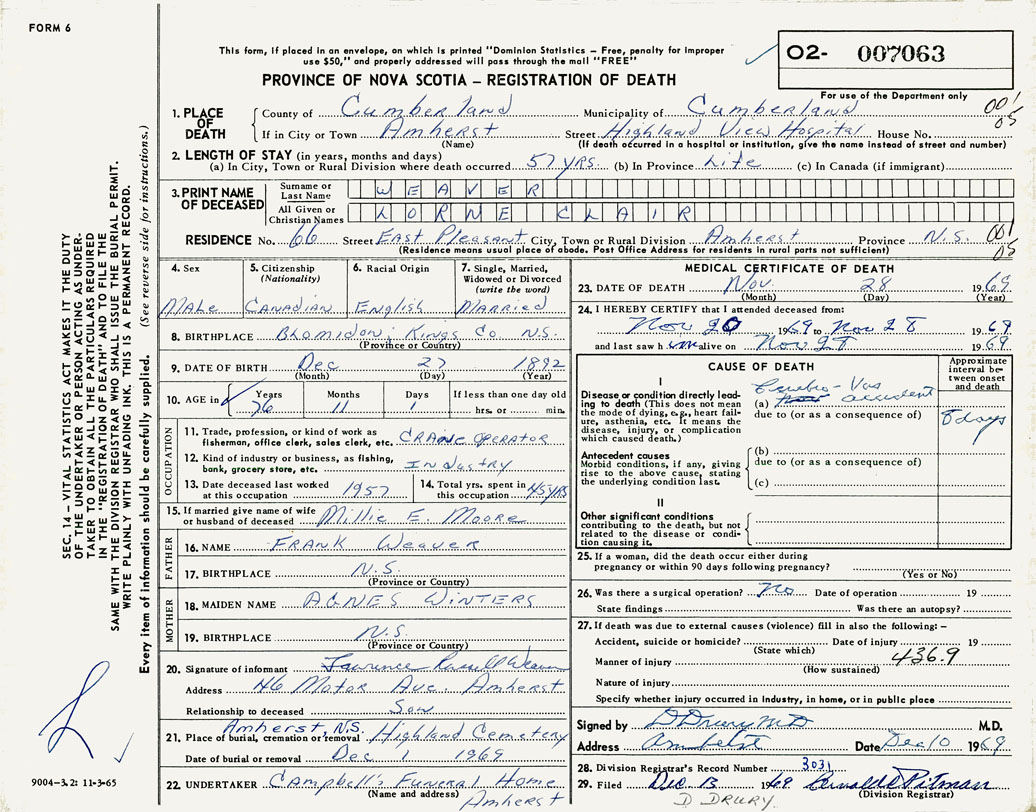 FORM 6
This form, if placed in an envelope, on which is printed "Dominion Statistics – Free, penalty for improper
use $50," and properly addressed will pass through the mail "FREE"
PROVINCE OF NOVA SCOTIA – REGISTRATION OF DEATH
O2- 007063
For use of the Department only
1. PLACE OF DEATH County of Cumberland Municipality of Cumberland 001
If in City or Town Amherst Street Highland View Hospital House No. 05
(Name) (If death occurred in a hospital or institution, give the name instead of street and number)
2. LENGTH OF STAY (in years, months and days)
(a) In City, Town or Rural Division where death occurred 57 YRS. (b) In Province Life (c) In Canada (if immigrant)
3. PRINT NAME OF DECEASED Surname or Last Name WEAVER
All Given or Christian Names LORNE CLAIR
RESIDENCE No. 66 Street East Pleasant City, Town or Rural Division Amherst Province N.S. 001
(Residence means usual place of abode. Post Office Address for residents in rural parts not sufficient) 05
4. Sex 5. Citizenship (Nationality) 6. Racial Origin 7. Single, Married, Widowed or Divorced (write the word)
MALE CANADIAN English MARRIED
8. BIRTHPLACE Blomidon, Kings Co N.S.
(Province or Country)
9. DATE OF BIRTH Dec 27 1892
(Month) (Day) (Year)
10. AGE in Years Months Days If less than one day old
76 11 1 hrs. or min.
OCCUPATION
11. Trade, profession, or kind of work as
fisherman, office clerk, sales clerk, etc. CRANE OPERATOR
12. Kind of industry or business, as fishing,
bank, grocery store, etc. INDUSTRY
13. Date deceased last worked
at this occupation 1957
14. Total yrs. spent in
this occupation 45 YRS
15. If married give name of wife
or husband of deceased Millie E. Moore
FATHER
16. NAME FRANK Weaver
17. BIRTHPLACE N.S.
(Province or Country)
MOTHER
18. MAIDEN NAME AGNES WINTERS
19. BIRTHPLACE N.S.
(Province or Country)
20. Signature of informant Lawrence Russell Weaver
Address 46 Motor Ave. Amherst
Relationship to deceased Son
Amherst, N.S.
21. Place of burial, cremation or removal Highland Cemetery
Date of burial or removal Dec 1 1969
22. UNDERTAKER Campbell's Funeral Home
(Name and address) Amherst
MEDICAL CERTIFICATE OF DEATH
23. DATE OF DEATH Nov. 28 1969
(Month) (Day) (Year)
24. I HEREBY CERTIFY that I attended deceased from:
Nov 20 1969 to Nov 28 1969
and last saw h im alive on Nov 28 1969
CAUSE OF DEATH
Approximate interval between onset and death
I
Disease or condition directly leading to death (This does not mean the mode of dying, e.g., heart failure, asthenia, etc. It means the disease, injury, or complication which caused death.)
Cerebro-Vas
(a) accident
due to (or as a consequence of) 8 days
Antecedent causes
Morbid conditions, if any, giving rise to the above cause, stating the underlying condition last.
(b)
due to (or as a consequence of)
(c)
II
Other significant conditions
contributing to the death, but not related to the disease or condition causing it.
25. If a woman, did the death occur either during
pregnancy or within 90 days following pregnancy?
(Yes or No)
26. Was there a surgical operation? No Date of operation 19
State findings Was there an autopsy?
27. If death was due to external causes (violence) fill in also the following: –
Accident, suicide or homicide? Date of injury 19
(State which)
Manner of injury 436.9
(How sustained)
Nature of injury
Specify whether injury occurred in Industry, in home, or in public place
Signed by D Drury MD M.D.
Address Amherst Date Dec 10 1969
28. Division Registrar's Record Number 3031
29. Filed Dec. 13 1969 Pitman
D. DRURY. (Division Registrar)
SEC. 14 – VITAL STATISTICS ACT MAKES IT THE DUTY
OF THE UNDERTAKER OR PERSON ACTING AS UNDER-
TAKER TO OBTAIN ALL THE PARTICULARS REQUIRED
IN THE "REGISTRATION OF DEATH" AND TO FILE THE
SAME WITH THE DIVISION REGISTRAR WHO SHALL ISSUE THE BURIAL PERMIT.
WRITE PLAINLY WITH UNFADING INK. THIS IS A PERMANENT RECORD.
Every item of information should be carefully supplied. (See reverse side for instructions.)
9004-3.2: 11-3-65